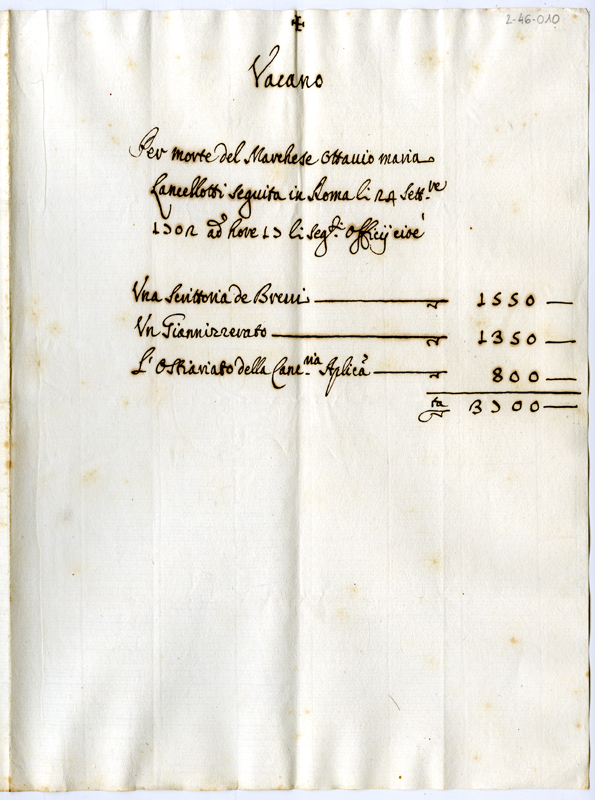 2-46-010
Vacano
Per morte del Marchese Ottavio maria
Lancellotti seguita in Roma li 24 Sett.ve
1702 ad hore 17 li seg.ti Officij cioè
Una Scrittoria de Brevi 1550
Un Giannizzerato 1350
L'Ostiariato della Canc.ria Aplica 800
3700